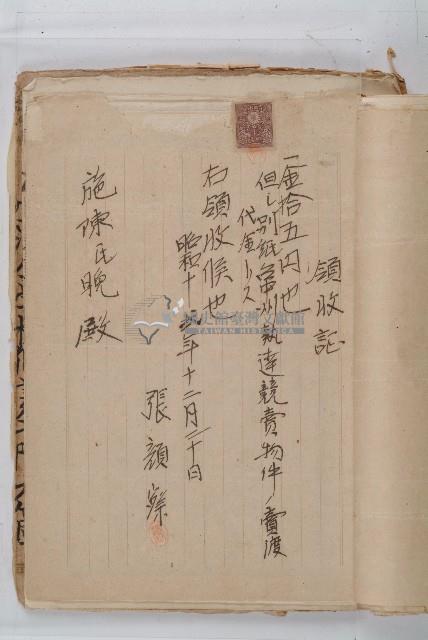 領收証
一金拾五円也
但シ別紙台中州執達競賣物件ノ賣渡
代金トス
右領收候也
昭和十年十二月三十日
張顏
施陳氏晚殿
國史館臺灣文獻館
TAIWAN HISTORICA